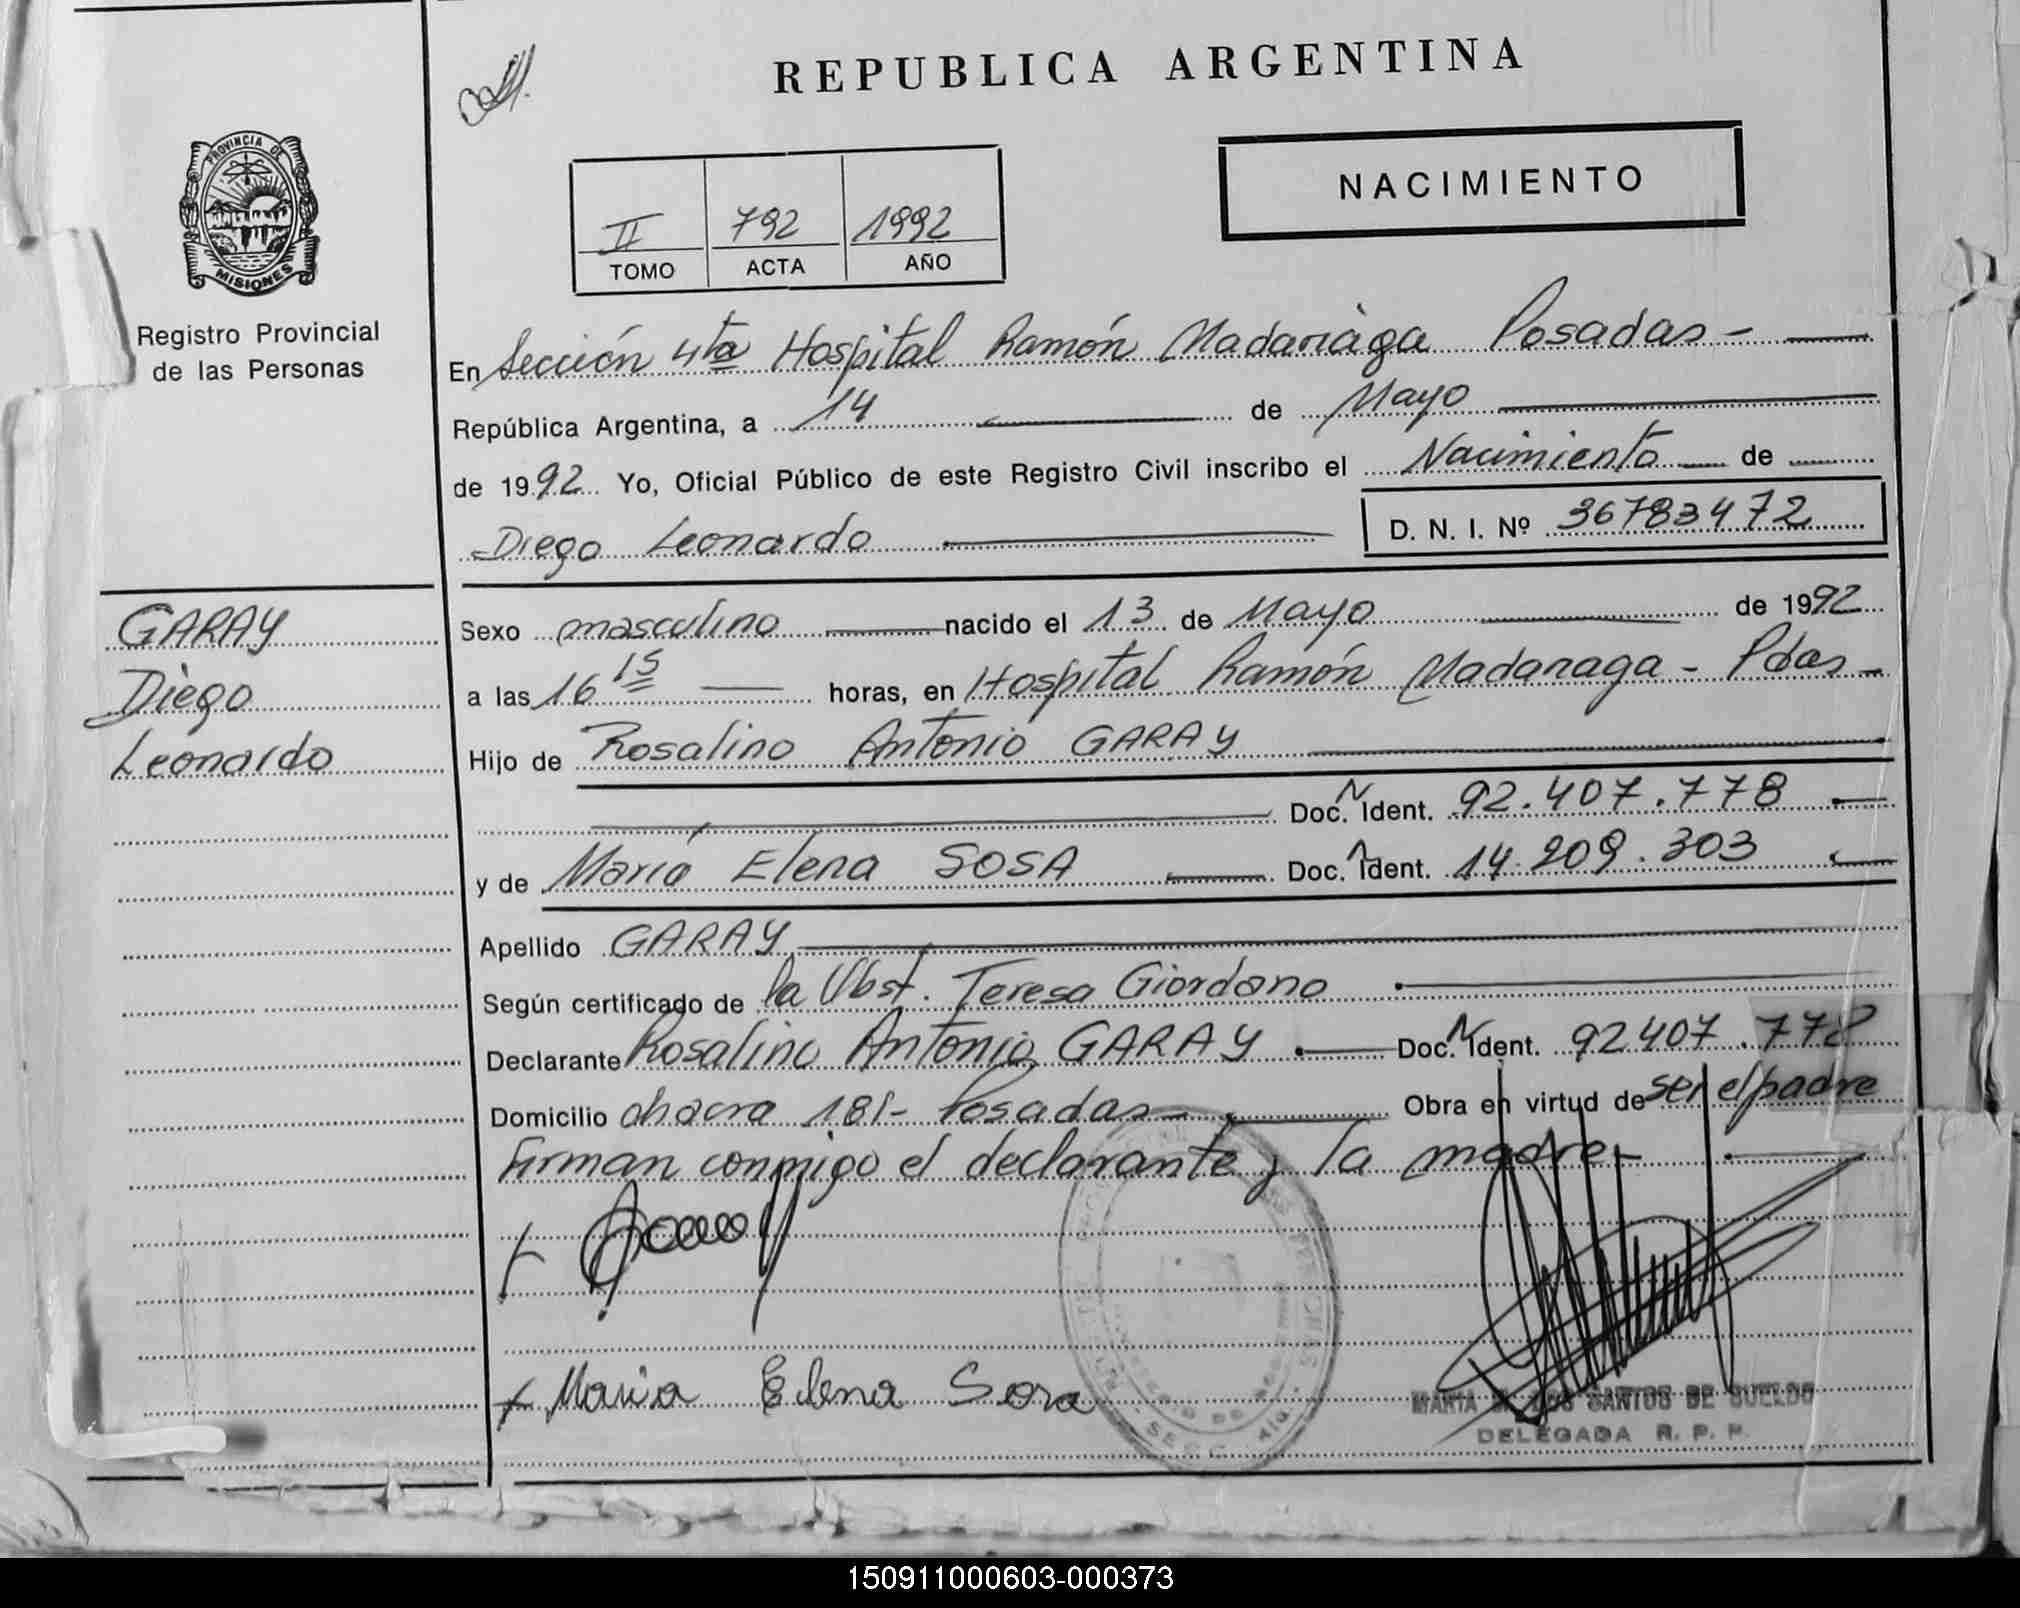 REPUBLICA ARGENTINA
PROVINCIA DE
MISIONES
Registro Provincial
de las Personas
NACIMIENTO
II 792 1992
TOMO ACTA AÑO
En Sección 4ta Hospital Ramón Madariaga Posadas -
República Argentina, a 14 de Mayo
de 1992 Yo, Oficial Público de este Registro Civil inscribo el Nacimiento de
Diego Leonardo D. N. I. Nº 36783472
GARAY
Diego
Leonardo
Sexo masculino nacido el 13 de Mayo de 1992
a las 16 15 horas, en Hospital Ramón Madariaga - Pdas -
Hijo de Rosalino Antonio GARAY
Doc. N Ident. 92.407.778
y de María Elena SOSA Doc. Ident. 14.209.303
Apellido GARAY
Según certificado de la Obst. Teresa Giordano
Declarante Rosalino Antonio GARAY Doc. N Ident. 92407.778
Domicilio chacra 181- Posadas - Obra en virtud de ser el padre
Firman conmigo el declarante y la madre -
Maria Elena Sosa
DE LOS SANTOS DE SUELDO
DELEGADA R. P. P.
150911000603-000373